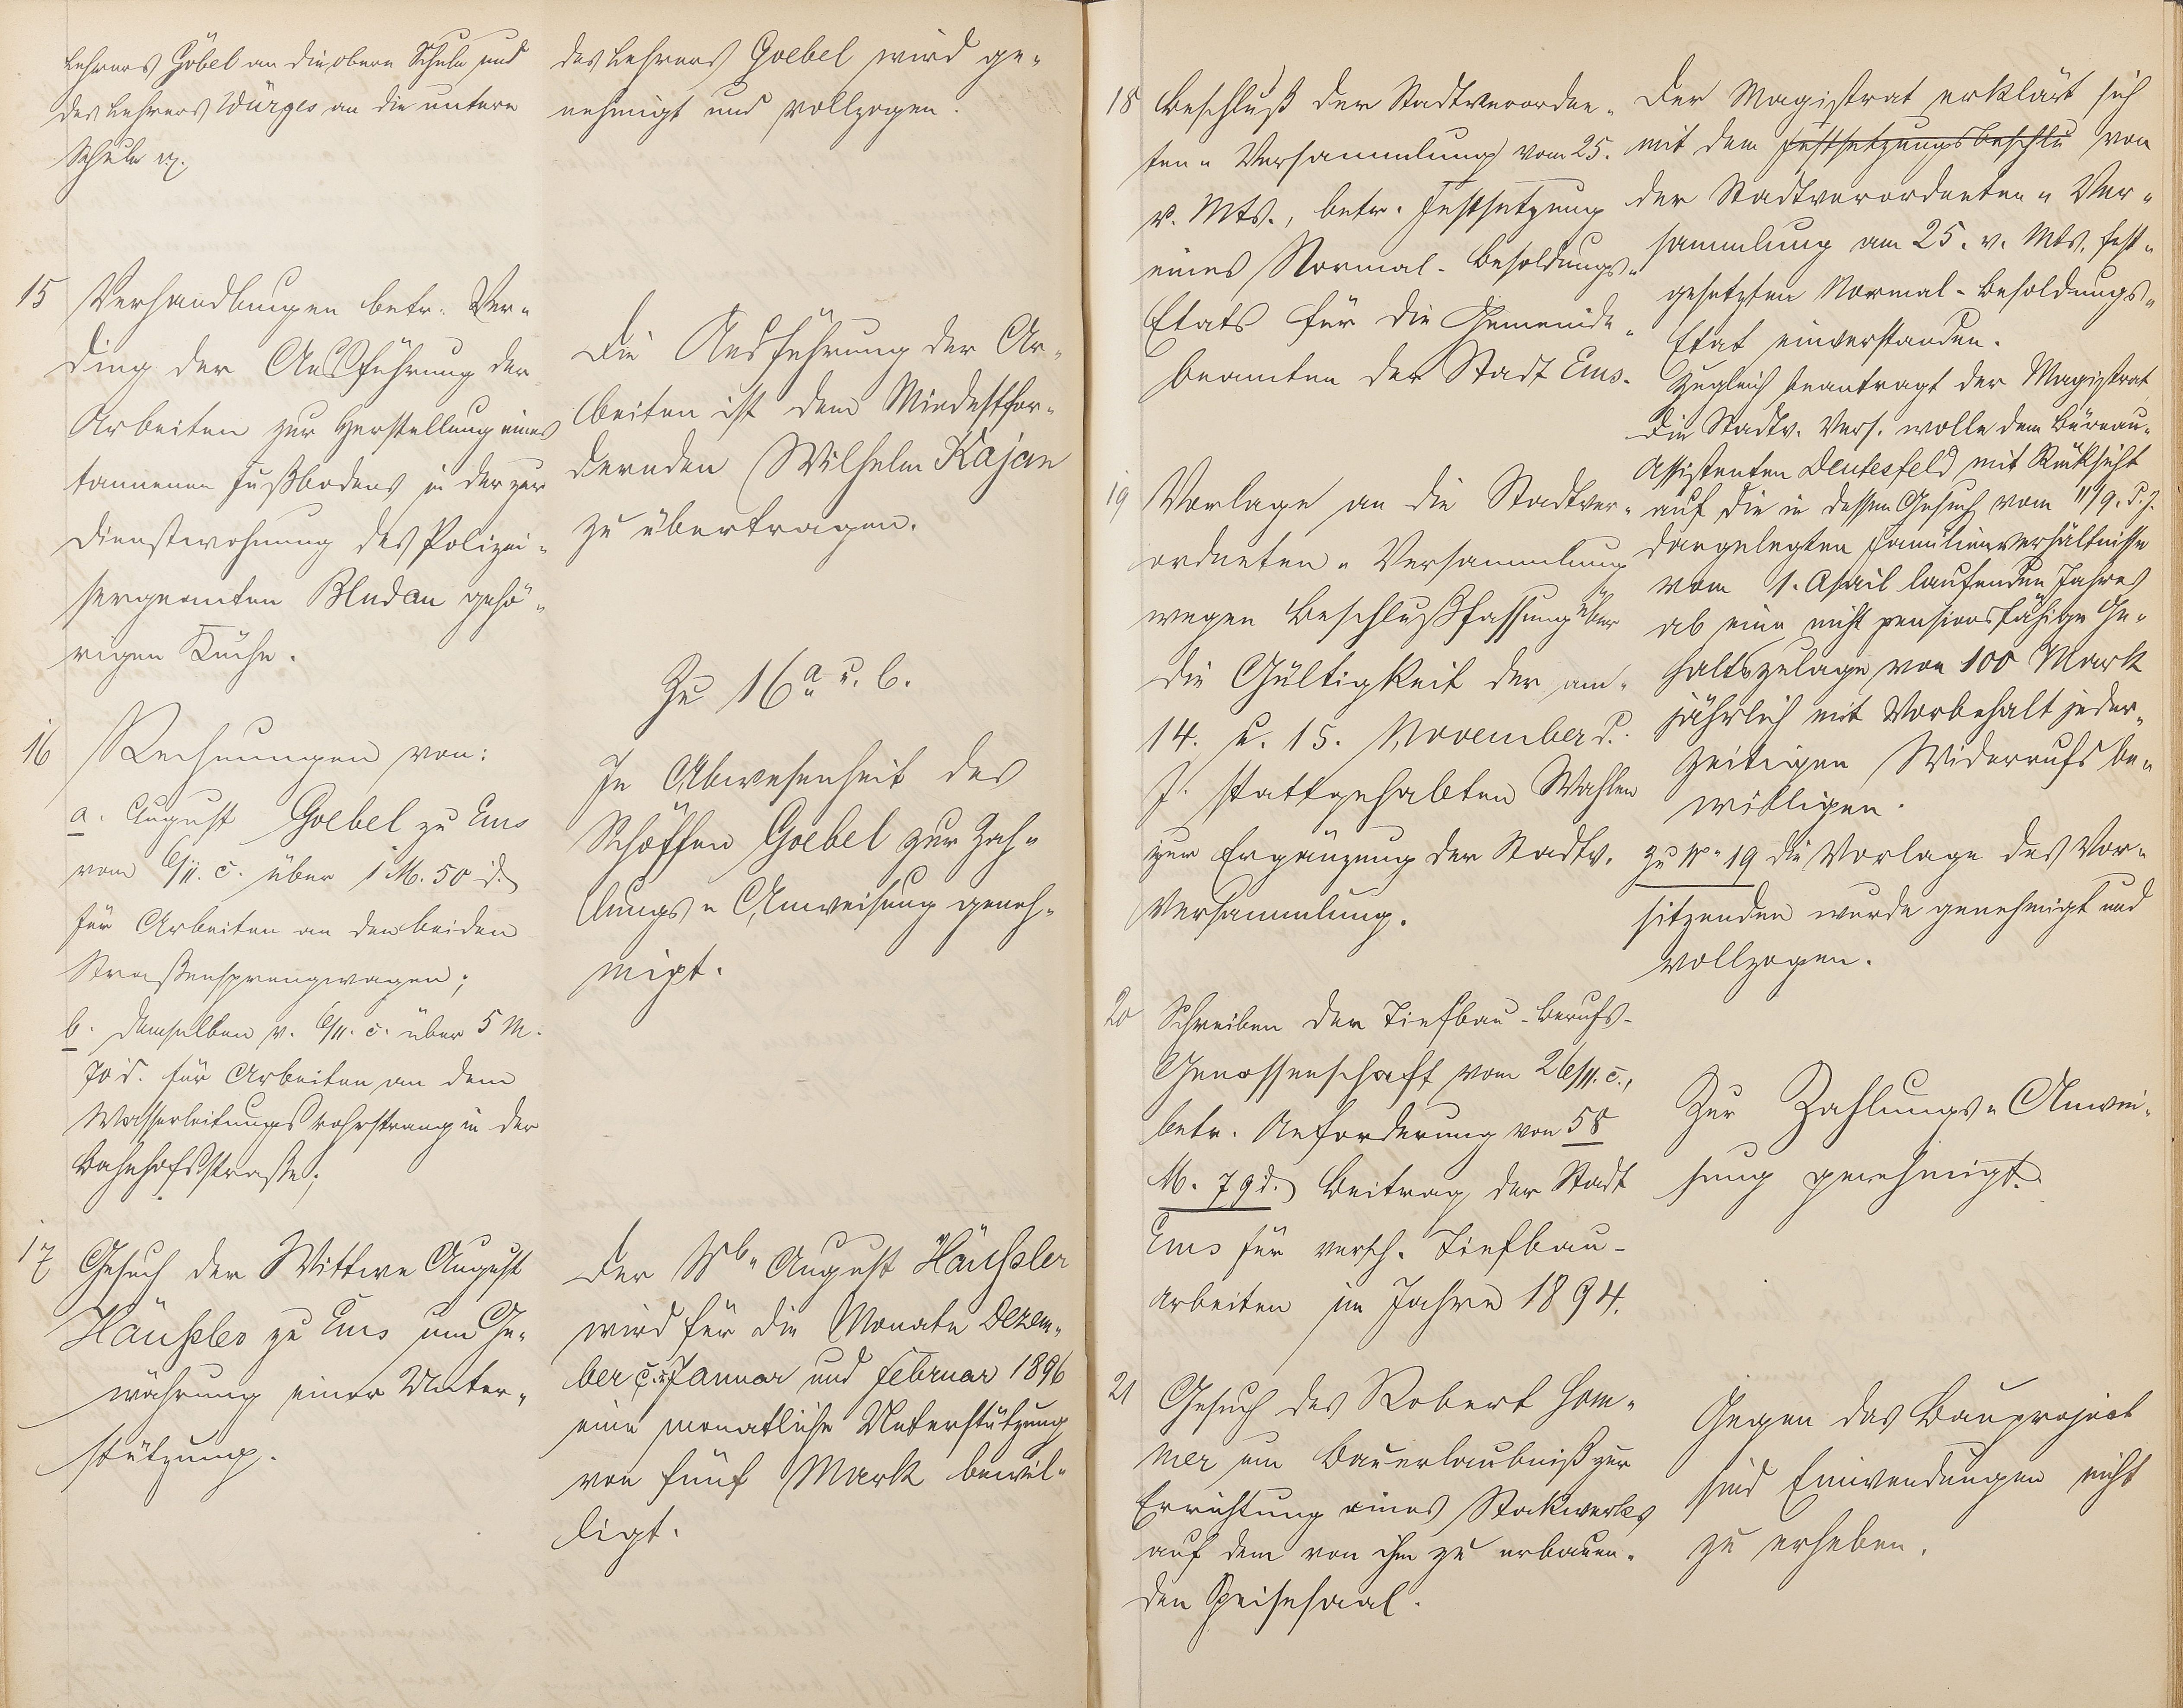 Lehrers Göbel an die obere Schule und
des Lehrers Würges an die untere
Schule etc.
des Lehrers Goebel wird ge-
nehmigt und vollzogen.
15 Verhandlungen betr. Ver-
ding der Ausführung der
Arbeiten zur Herstellung eines
tannenen Fußbodens in der zur
Dienstwohnung des Polizei-
sergeanten Bludau gehö-
rigen Küche.
Die Ausführung der Ar-
beiten ist dem Mindestfor-
dernden Wilhelm Kajan
zu übertragen.
16 Rechnungen von:
a. August Goebel zu Ems
vom 6/11. c. über 1 M. 50 d.
für Arbeiten an den beiden
Straßensprengwagen;
b. demselben v. 6/11. c. über 5 M.
70 d. für Arbeiten an dem
Wasserleitungsrohrstrang in der
Bahnhofsstraße;
Zu 16 a u. b.
In Abwesenheit des
Schöffen Goebel zur Zah-
lungs-Anweisung geneh-
migt.
17 Gesuch der Wittwe August
Häußler zu Ems um Ge-
währung einer Unter-
stützung.
Der Wb. August Häußler
wird für die Monate Dezem-
ber c. Januar und Februar 1896
eine monatliche Unterstützung
von fünf Mark bewil-
ligt.
18 Beschluß der Stadtverordne-
ten-Versammlung vom 25.
v. Mts., betr. Festsetzung
eines Normal-Besoldungs-
Etats für die Gemeinde-
beamten der Stadt Ems.
Der Magistrat erklärt sich
mit dem Festsetzungsbeschlu von
der Stadtverordneten-Ver-
sammlung am 25. v. Mts. fest-
gesetzten Normal-Besoldungs-
Etat einverstanden.
Zugleich beantragt der Magistrat
die Stadtv. Vers. wolle dem Büreau-
Assistenten Deutesfeld mit Rücksicht
auf die in dessen Gesuch vom 11/9. d. J.
dargelegten Familienverhältnisse
vom 1. April laufenden Jahres
ab eine nicht pensionsfähige Ge-
haltszulage von 100 Mark
jährlich mit Vorbehalt jeder-
zeitigen Widerrufs be-
willigen.
19 Vorlage an die Stadtver-
ordneten-Versammlung
wegen Beschlußfassung über
die Gültigkeit der am
14. u. 15. November d.
J. stattgehabten Wahlen
zur Ergänzung der Stadtv.
Versammlung.
Zu No 19 die Vorlage des Vor-
sitzenden wurde genehmigt und
vollzogen.
20 Schreiben der Tiefbau-Berufs-
Genossenschaft vom 26/11. c.,
betr. Anforderung von 58
M. 79 d. Beitrag der Stadt
Ems für versch. Tiefbau-
arbeiten im Jahre 1894.
Zur Zahlungs-Anwei-
sung genehmigt.
21 Gesuch des Robert Hom-
mer um Bauerlaubniß zur
Errichtung eines Stockwerks
auf dem von ihm zu erbauen-
den Speisesaal.
Gegen das Bauproject
sind Einwendungen nicht
zu erheben.